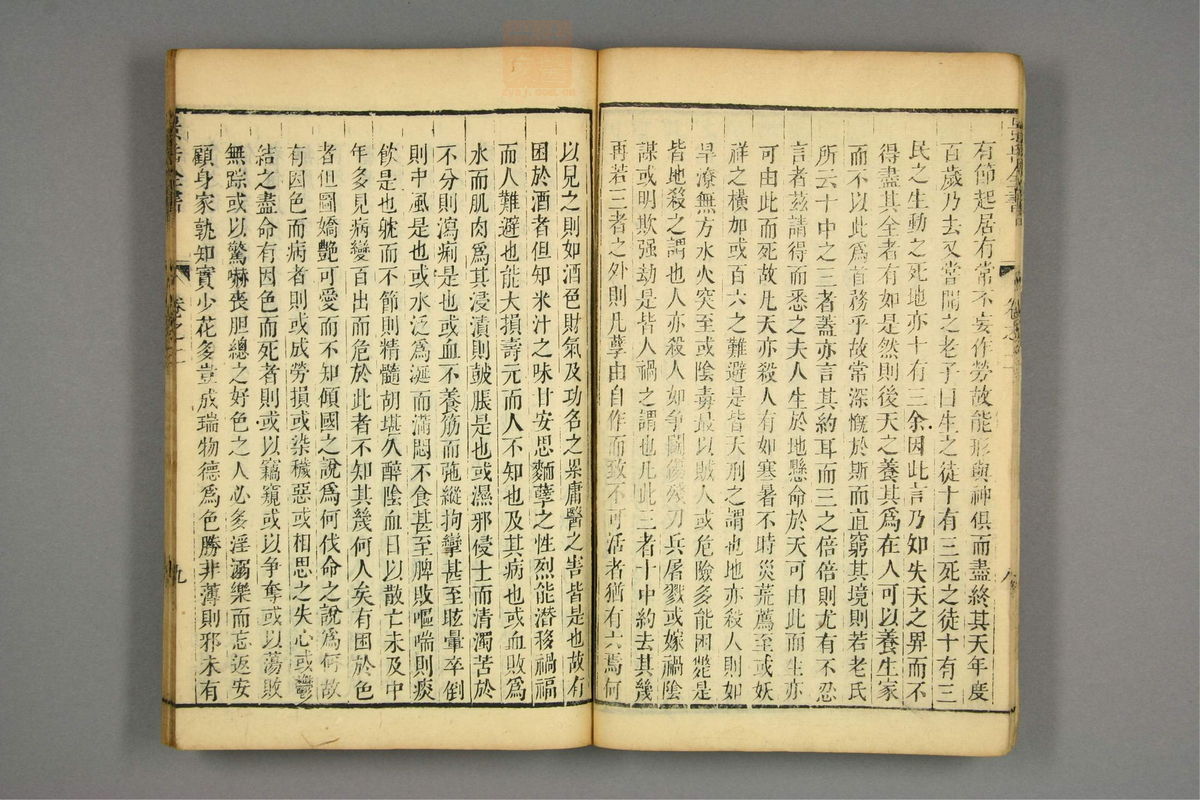 有節起居有常不妄作勞故能形與神俱而盡終其天年度
百歲乃去又嘗聞之老子曰生之徒十有三死之徒十有三
民之生動之死地亦十有三余因此言乃知失天之畀而不
得盡其全者有如是然則後天之養其爲在人可以養生家
而不以此爲首務乎故常深慨於斯而直窮其境則若老氏
所云十中之三者蓋亦言其約耳而三之倍倍則尤有不忍
言者茲請得而悉之夫人生於地懸命於天可由此而生亦
可由此而死故凡天亦殺人有如寒暑不時災荒薦至或妖
祥之橫加或百六之難避是皆天刑之謂也地亦殺人則如
旱潦無方水火突至或陰毒最以賊人或危險多能困斃是
皆地殺之謂也人亦殺人如争鬭傷殘刀兵屠戮或嫁禍陰
謀或明欺强劫是皆人禍之謂也凡此三者十中約去其幾
再若三者之外則凡孽由自作而致不可活者猶有六焉何
以見之則如酒色財氣及功名之累庸醫之害皆是也故有
困於酒者但知米汁之味甘安思麯孽之性烈能潜移禍福
而人難避也能大損壽元而人不知也及其病也或血敗爲
水而肌肉爲其浸漬則皷脹是也或濕邪侵土而清濁苦於
不分則瀉痢是也或血不養筋而弛縱拘攣甚至眩暈卒倒
則中風是也或水泛爲涎而滿悶不食甚至脾敗嘔喘則痰
飲是也躭而不節則精髓胡堪久醉陰血日以散亡未及中
年多見病變百出而危於此者不知其幾何人矣有困於色
者但圖嬌艷可愛而不知傾國之說爲何伐命之說爲何故
有因色而病者則或成勞損或染穢惡或相思之失心或鬱
結之盡命有因色而死者則或以竊窺或以争奪或以蕩敗
無踪或以驚嚇喪胆總之好色之人必多淫溺樂而忘返安
顧身家孰知實少花多豈成瑞物德爲色勝非薄則邪未有
景岳全書
卷之二
九